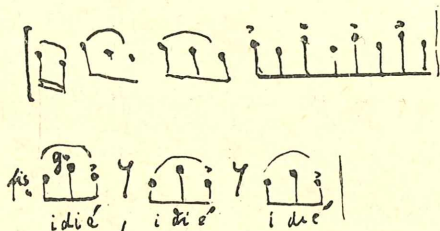 fis. g.
idié, i dié i dié